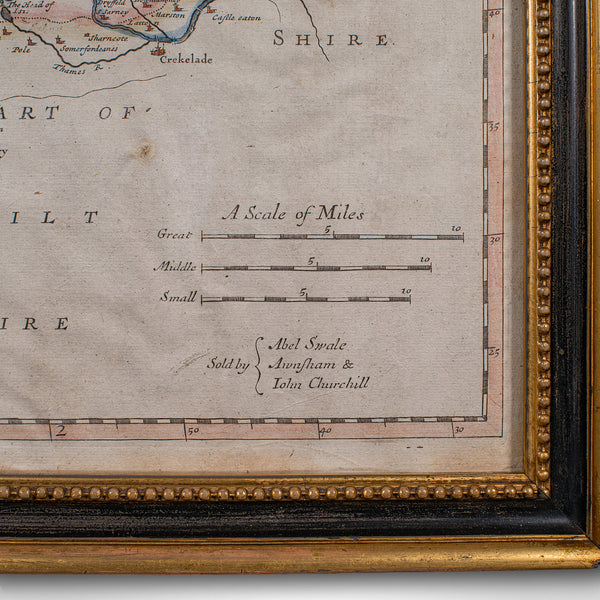 The Head of
Isi.
Dryfeld
Sarney
Marston
Latton
Castle eaton
Sharncote
Pole
Somerfordeanis
Crekelade
Thames R.
SHIRE.
ART OF
ILT
IRE
A Scale of Miles
Great 5 10
Middle 5 10
Small 5 10
Sold by
Abel Swale
Awnsham &
Iohn Churchill
40
35
30
25
2 50 40 30